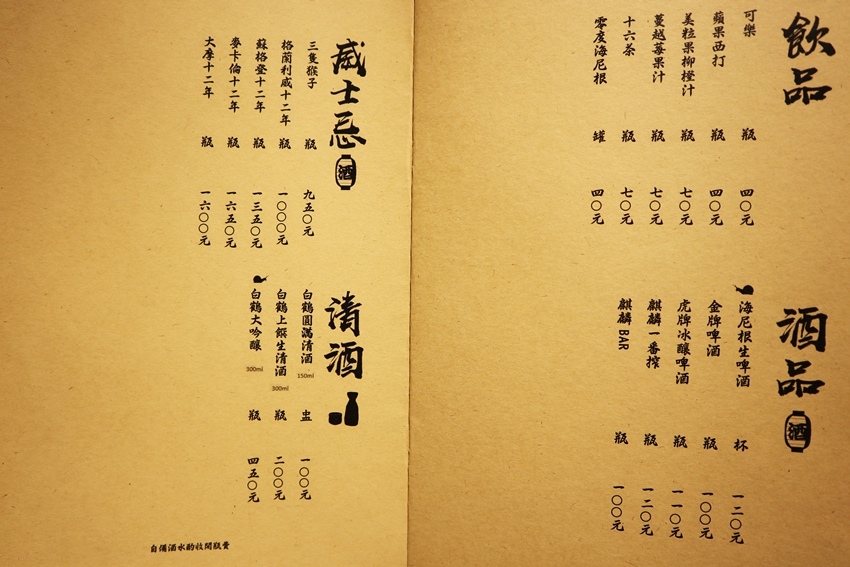 飲品
可樂 瓶 四〇元
蘋果西打 瓶 四〇元
美粒果柳橙汁 瓶 七〇元
蔓越莓果汁 瓶 七〇元
十六茶 瓶 七〇元
零度海尼根 罐 四〇元
酒品
酒
海尼根生啤酒 杯 一二〇元
金牌啤酒 瓶 一〇〇元
虎牌冰釀啤酒 瓶 一一〇元
麒麟一番搾 瓶 一二〇元
麒麟 BAR 瓶 一〇〇元
威士忌
酒
三隻猴子 瓶 九五〇元
格蘭利威十二年 瓶 一〇〇〇元
蘇格登十二年 瓶 一三五〇元
麥卡倫十二年 瓶 一六五〇元
大摩十二年 瓶 一六〇〇元
清酒
白鶴圓滿清酒 150ml 盅 一〇〇元
白鶴上饌生清酒 300ml 瓶 二〇〇元
白鶴大吟釀 300ml 瓶 四五〇元
自備酒水酌收開瓶費